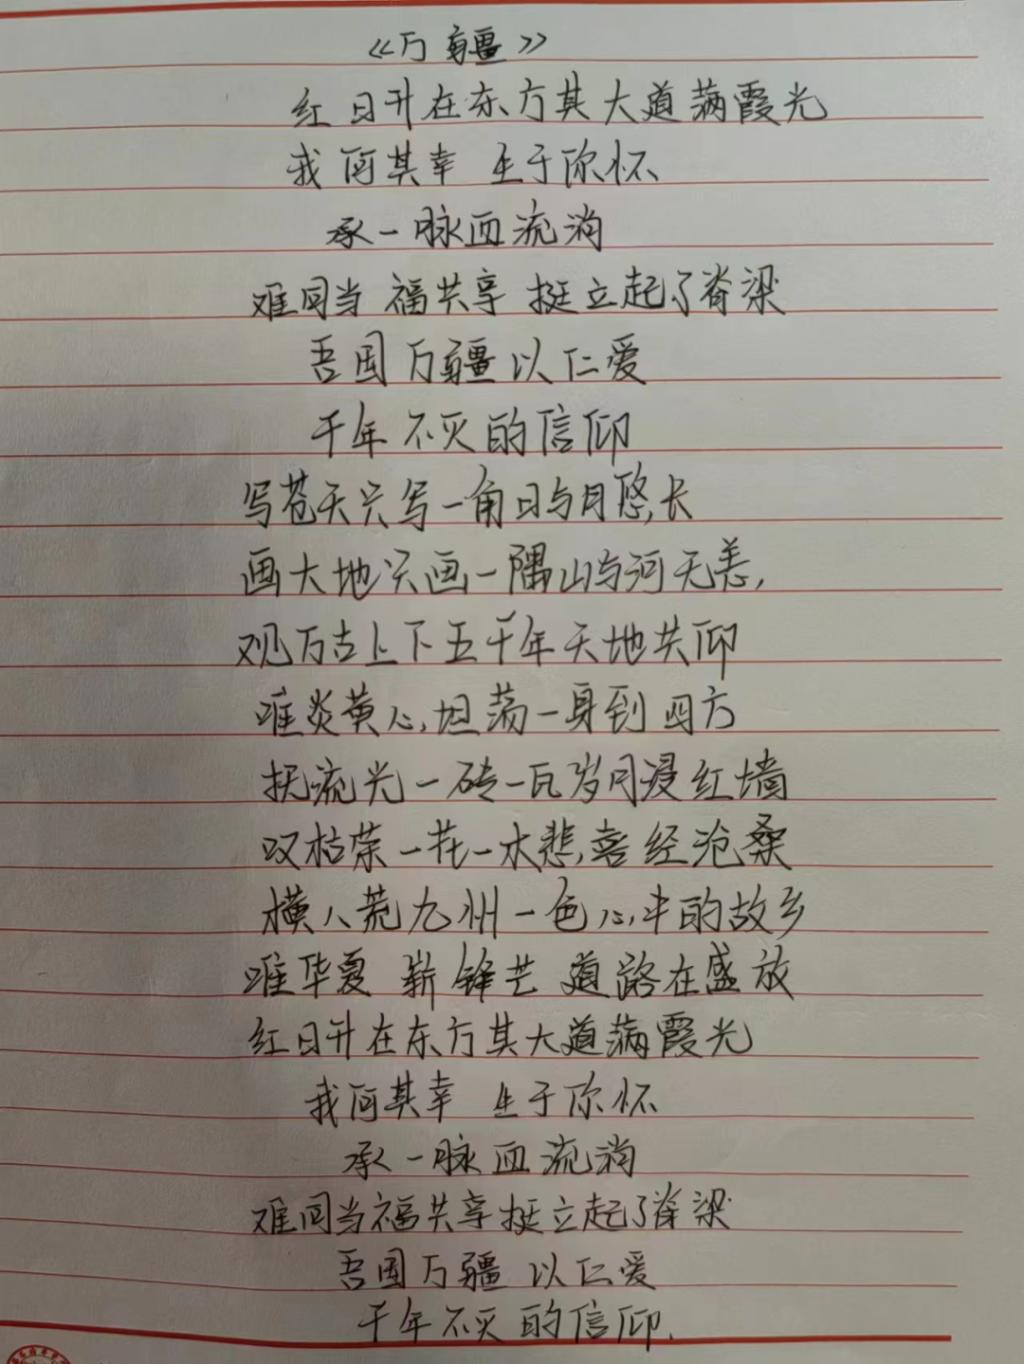 《万疆》
红日升在东方其大道满霞光
我何其幸 生于你怀
承一脉血流淌
难同当 福共享 挺立起了脊梁
吾国万疆以仁爱
千年不灭的信仰
写苍天只写一角日与月悠长
画大地只画一隅山与河无恙,
观万古上下五千年天地共仰
唯炎黄心,坦荡一身到四方
抚流光一砖一瓦岁月浸红墙
叹枯荣一花一木悲,喜经沧桑
横八荒九州一色心,中的故乡
唯华夏 崭锋芒 道路在盛放
红日升在东方其大道满霞光
我何其幸 生于你怀
承一脉血流淌
难同当福共享挺立起了脊梁
吾国万疆 以仁爱
千年不灭的信仰.